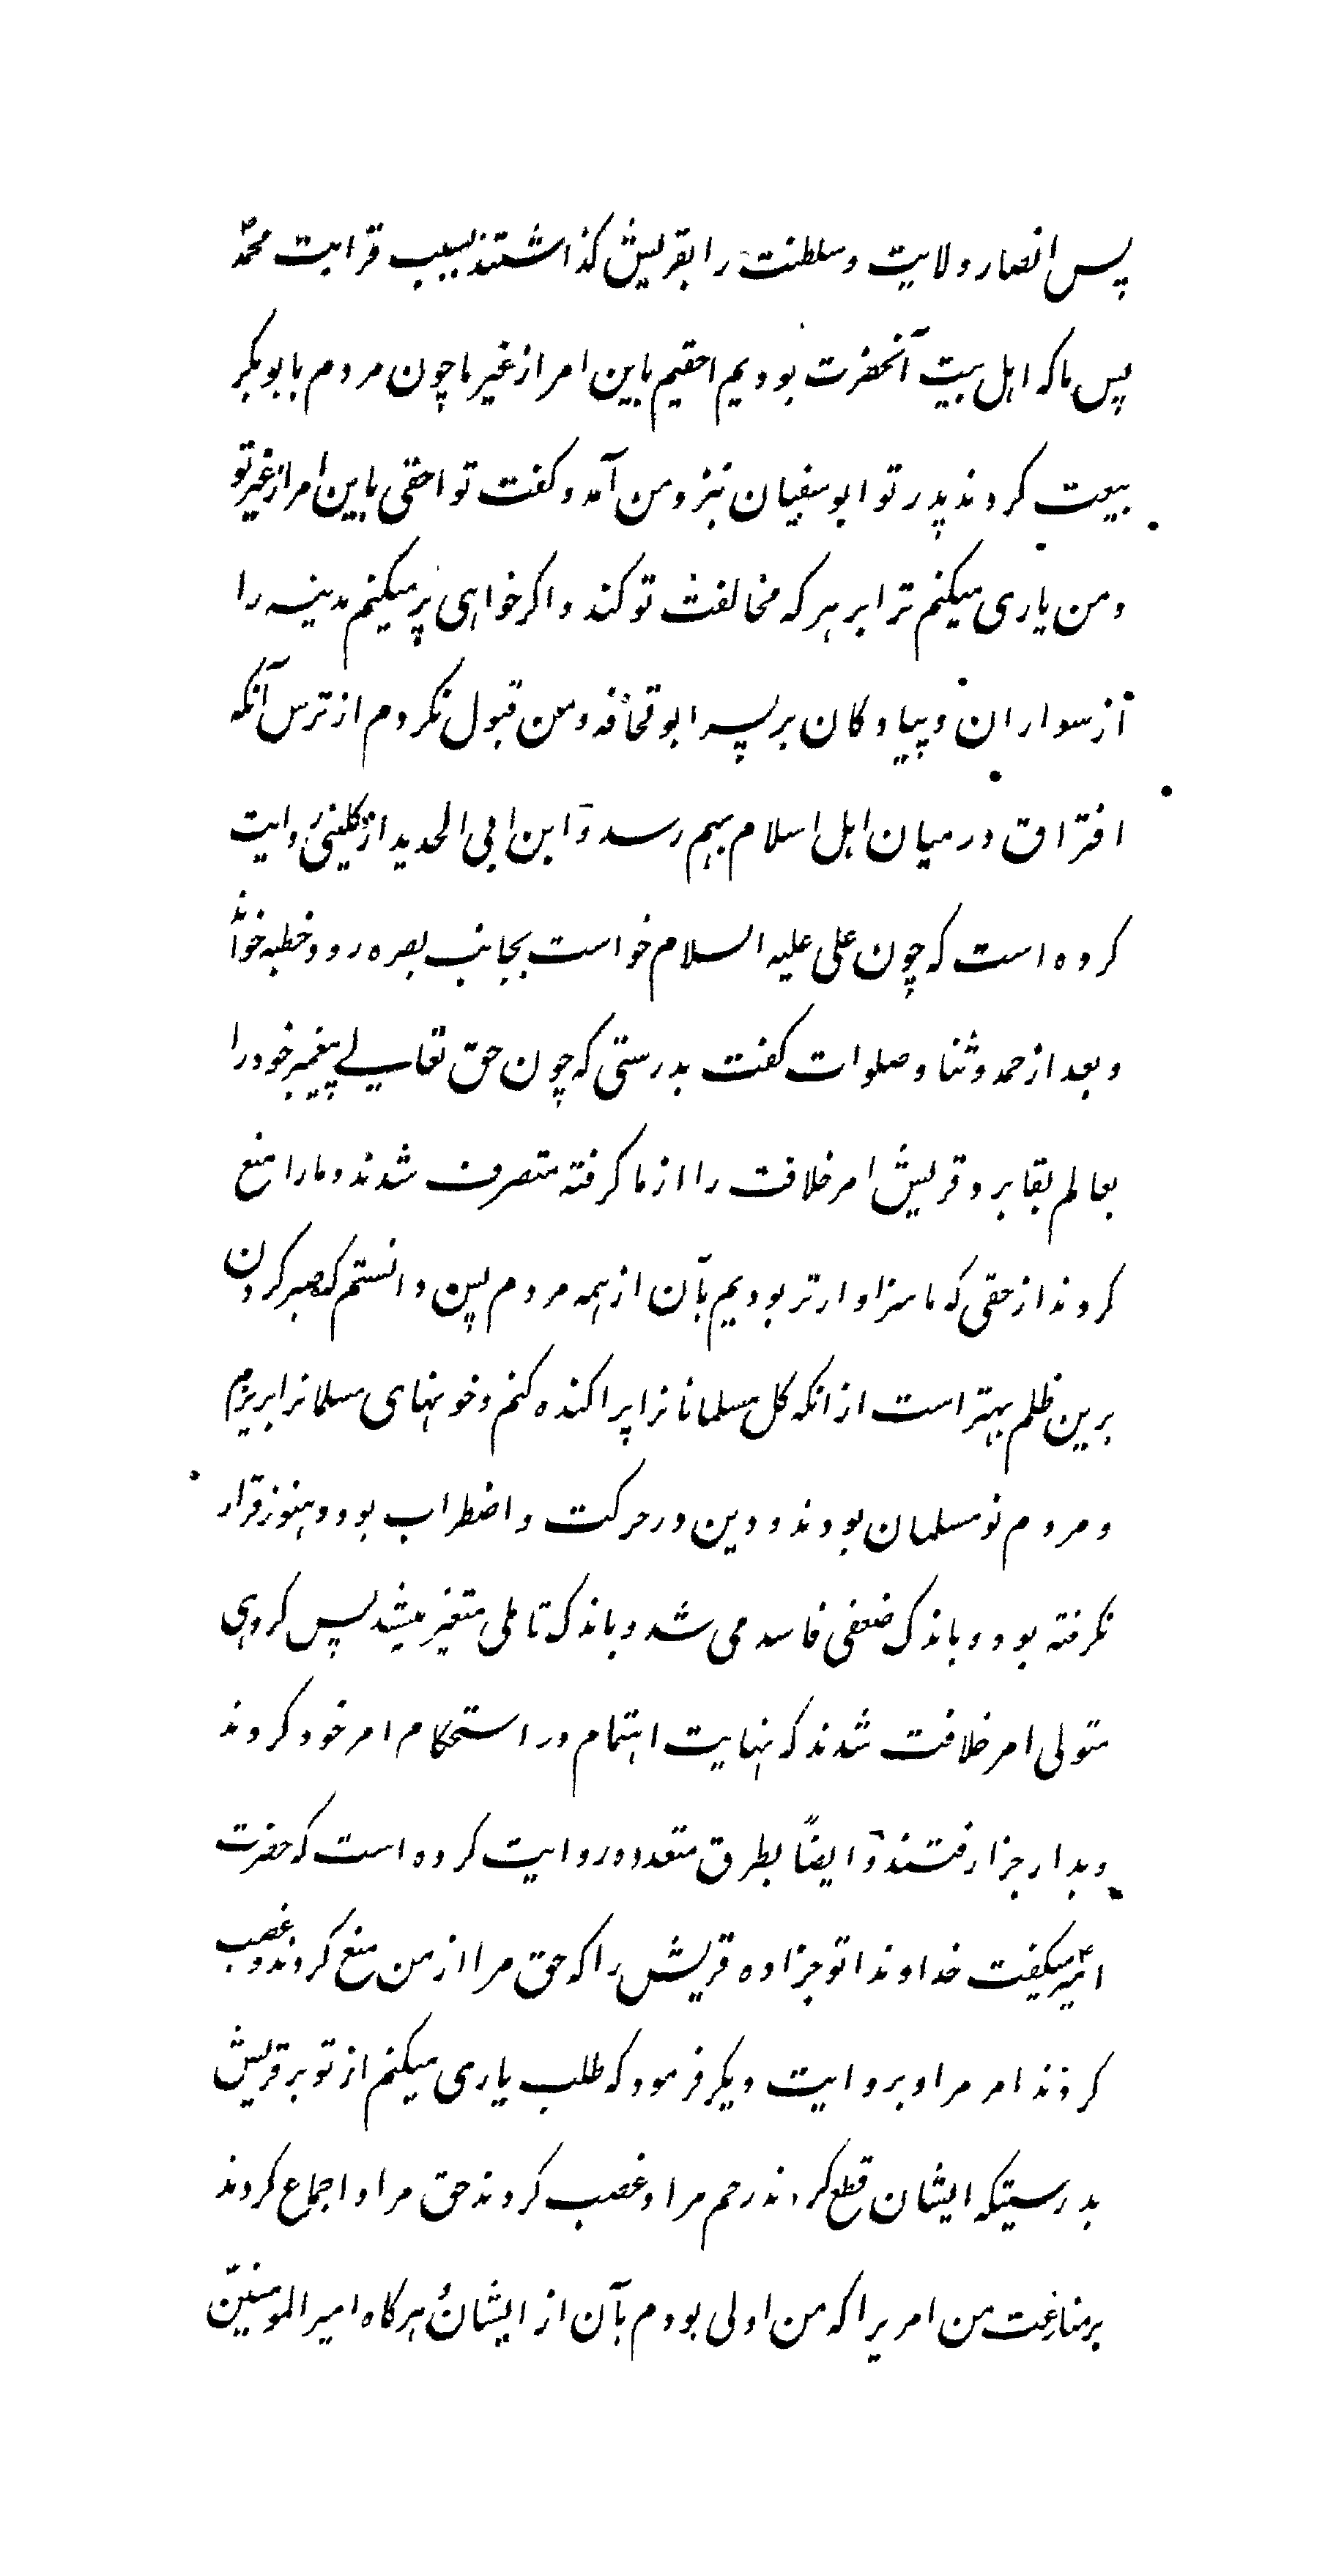 پس انصار ولایت و سلطنت را بقریش کذاشتند بسبب قرابت محمدؐ
پس ما که اهل بیت آنحضرت بودیم احقیم باین امر از غیر ما چون مردم با بوبکر
بیعت کردند پدر تو ابوسفیان نیز و من آمد و کفت تو احقی باین امر از غیر تو
و من یاری میکنم ترا بر هر که مخالفت تو کند و اکر خواهی پر میکنم مدینه را
از سواران و پیادکان بر پسر ابو قحافه و من قبول نکردم از ترس آنکه
افتراق در میان اهل اسلام بهم رسد و ابن ابی الحدید از کلینی روایت
کرده است که چون علی علیه السلام خواست بجانب بصره رود خطبه خواند
و بعد از حمد و ثنا و صلوات کفت بدرستی که چون حق تعالی پیغمبر خود را
بعالم بقا برد قریش امر خلافت را از ما کرفته متصرف شدند و ما را منع
کردند از حقی که ما سزاوارتر بودیم بآن از همه مردم پس دانستم که صبر کردن
برین ظلم بهتر است از انکه کل مسلمانانرا پراکنده کنم و خونهای مسلمانرا بریزم
و مردم نو مسلمان بودند و دین در حرکت و اضطراب بود و هنوز قرار
نکرفته بود و باندک ضعفی فاسد می شد و باندک تاملی متغیر میشد پس کروهی
متولی امر خلافت شدند که نهایت اهتمام در استحکام امر خود کردند
و بدار جزا رفتند و ایضاً بطرق متعدده روایت کرده است که حضرت
امیرؑ میکفت خداوندا تو جزا ده قریش را که حق مرا از من منع کردند و غصب
کردند امر مرا و بروایت دیکر فرمود که طلب یاری میکنم از تو بر قریش
بدرستیکه ایشان قطع کردند رحم مرا و غصب کردند حق مرا و اجماع کردند
بر منازعت من امریرا که من اولی بودم بآن از ایشان هرکاه امیر المومنین